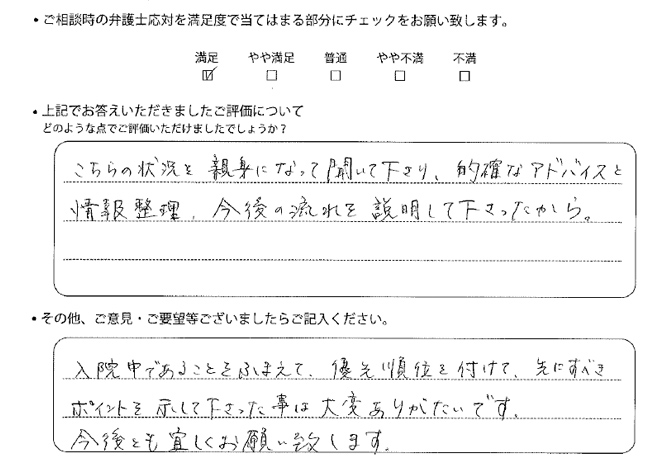 ・ご相談時の弁護士応対を満足度で当てはまる部分にチェックをお願い致します。
満足 やや満足 普通 やや不満 不満
☑ □ □ □ □
・上記でお答えいただきましたご評価について
どのような点でご評価いただけましたでしょうか？
こちらの状況を親身になって聞いて下さり、的確なアドバイスと
情報整理、今後の流れを説明して下さったから。
・その他、ご意見・ご要望等ございましたらご記入ください。
入院中であることをふまえて、優先順位を付けて、先にすべき
ポイントを示して下さった事は大変ありがたいです。
今後とも宜しくお願い致します。